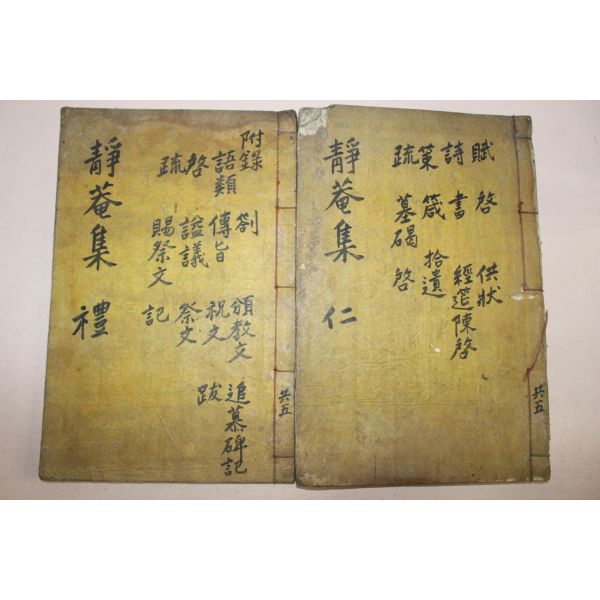 共五
賦 啓 供狀
詩 書 經筵陳啓
策 箴 拾遺
疏 墓碣 啓
靜菴集 仁
共五
附錄 劄 頒教文 追慕碑記
語類 傳旨 祝文 跋
啓 諡議 祭文
疏 賜祭文 記
靜菴集 禮